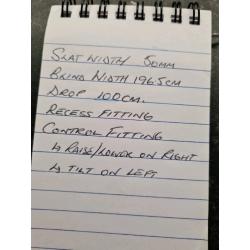 SLAT WIDTH 50MM
BLIND WIDTH 196.5CM
DROP 100CM.
RECESS FITTING
CONTROL FITTING
↳ RAISE/LOWER ON RIGHT
↳ TILT ON LEFT